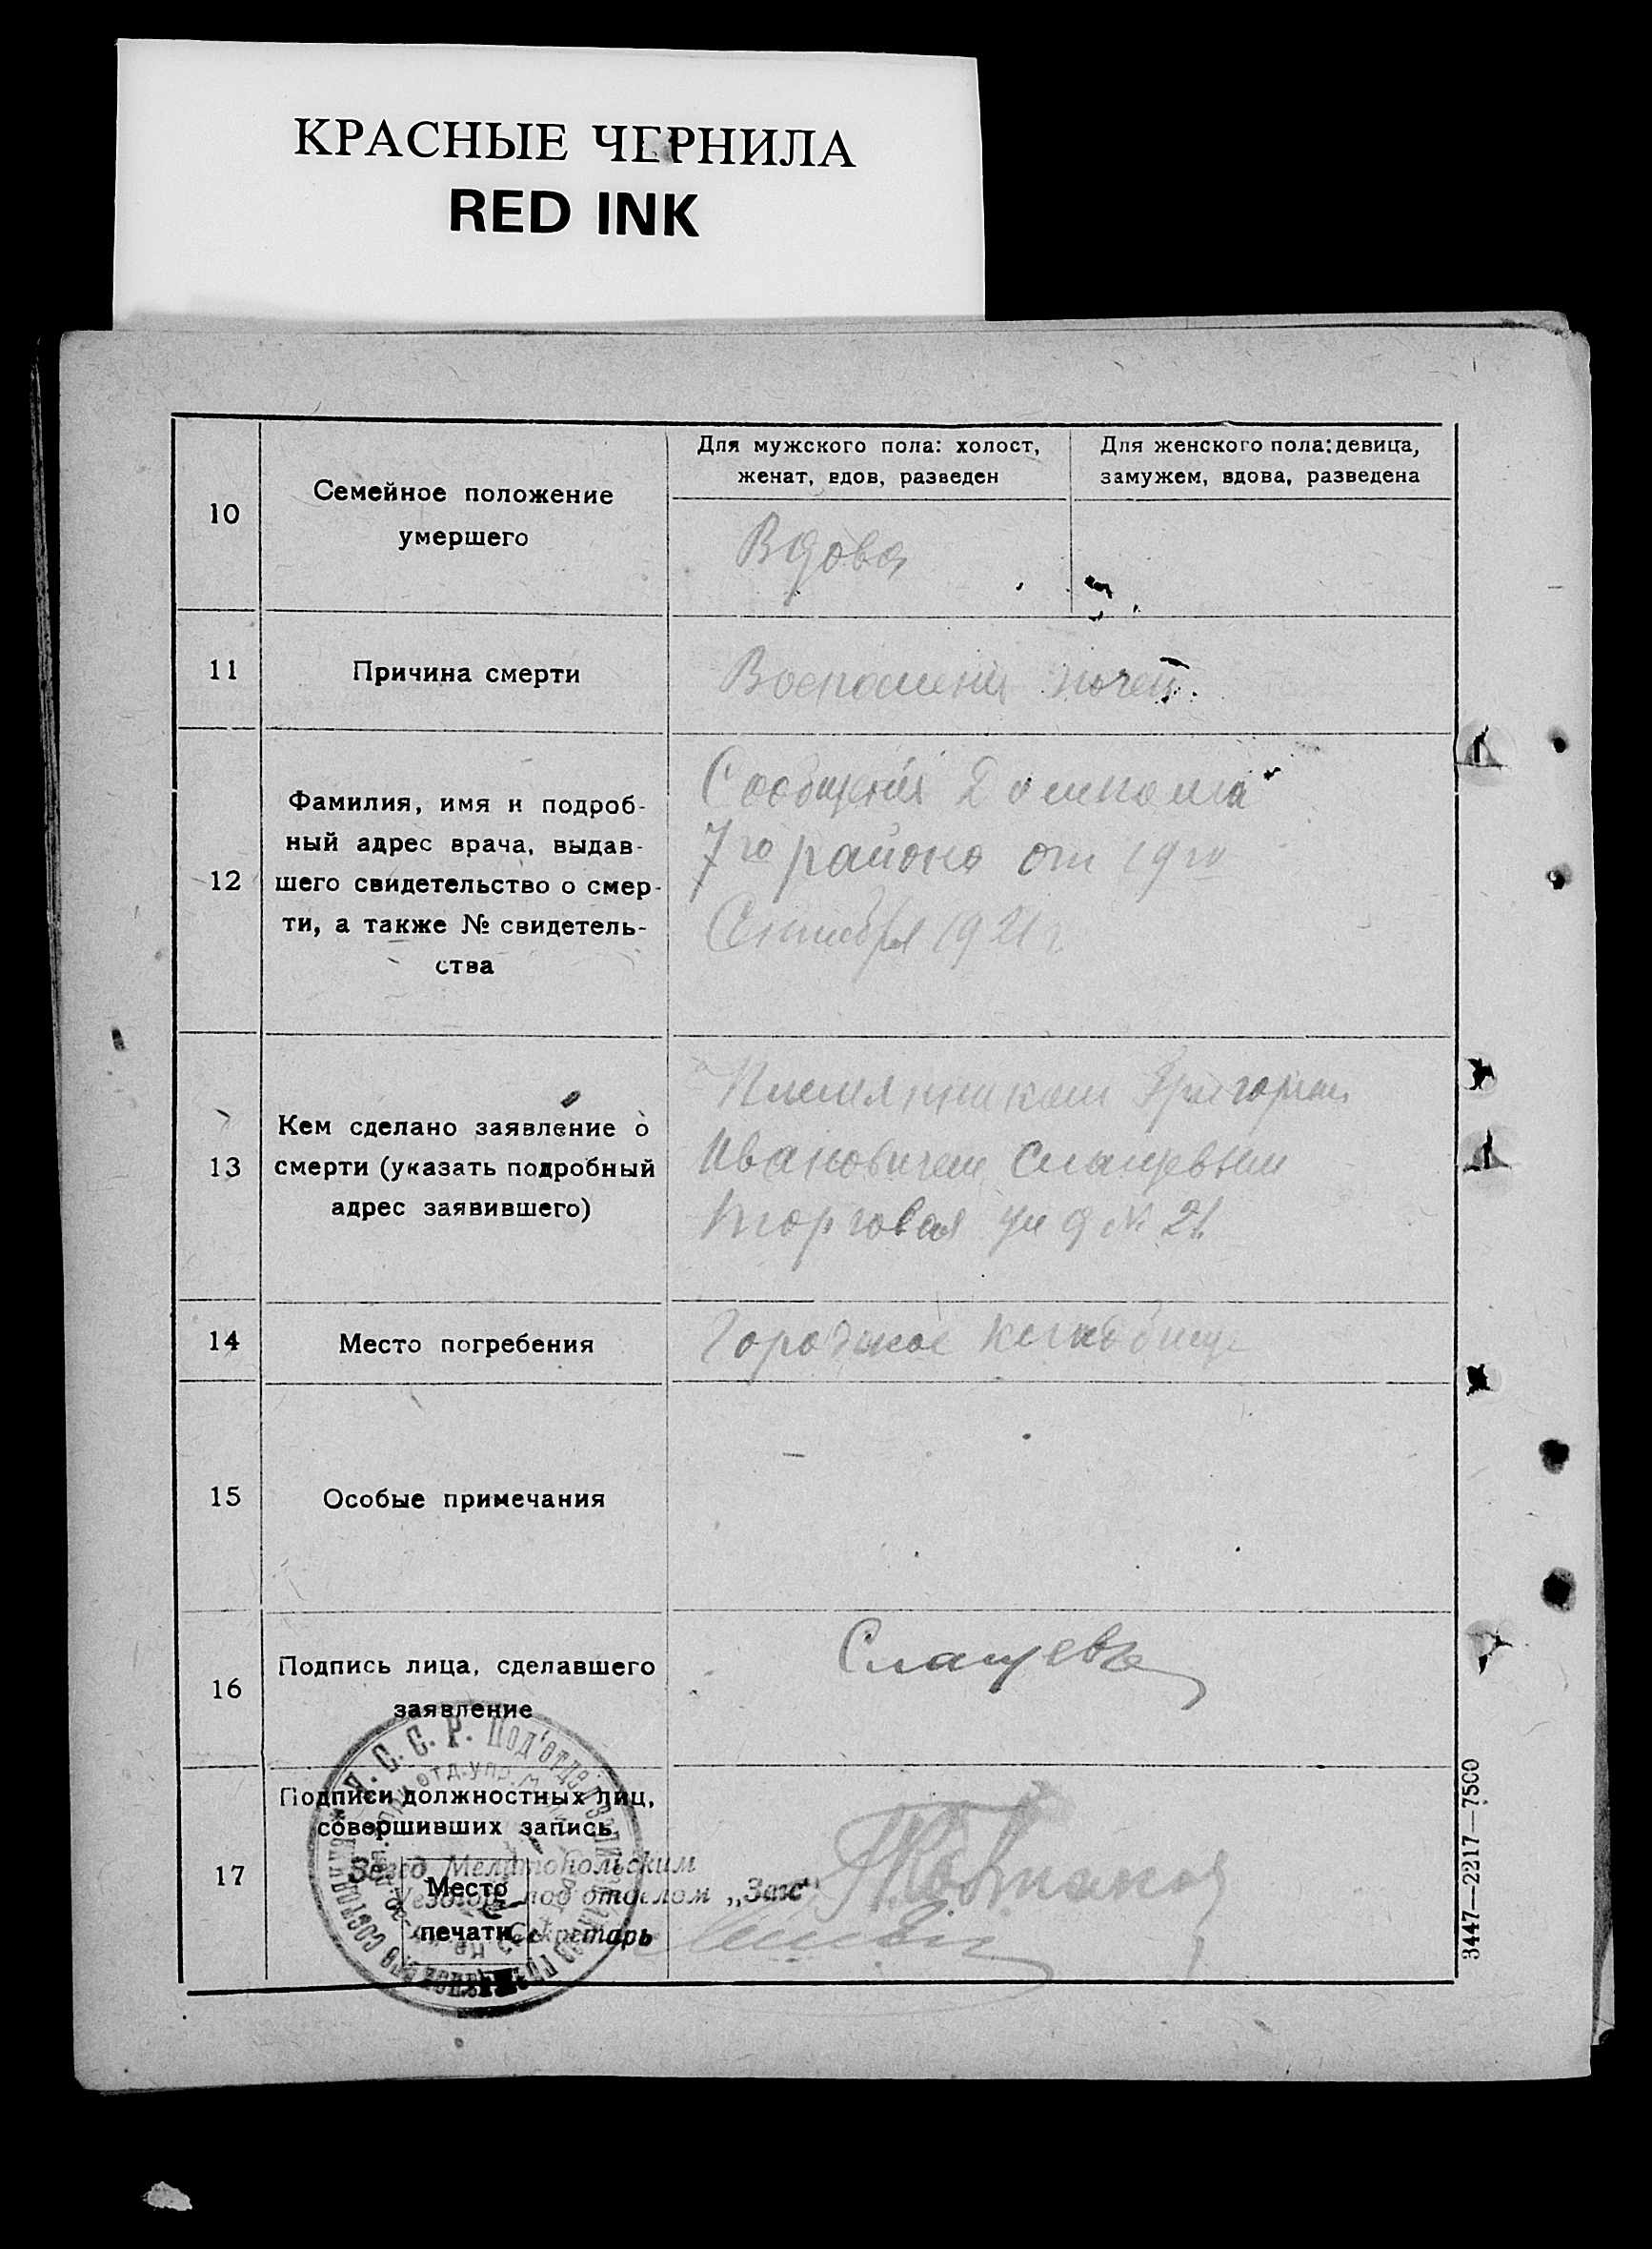 КРАСНЫЕ ЧЕРНИЛА
RED INK
10
Семейное положение
умершего
Для мужского пола: холост,
женат, вдов, разведен
Для женского пола: девица,
замужем, вдова, разведена
Вдова
11
Причина смерти
Воспаления почек.
12
Фамилия, имя и подроб-
ный адрес врача, выдав-
шего свидетельство о смер-
ти, а также № свидетель-
ства
Сообщения Домкома
7го района от 19го
Сентября 1921 г
13
Кем сделано заявление о
смерти (указать подробный
адрес заявившего)
Племянником Григорием
Ивановичем Слащевым
Торговая ул д № 21
14
Место погребения
Городское кладбище
15
Особые примечания
—
16
Подпись лица, сделавшего
заявление
Слащевъ
17
Подписи должностных лиц,
совершивших запись.
С. С. Р. Под'отдел
Завед. Мелитопольским
Уездным под'отделом „Загс"
Место
печати
Секретарь
3447—2217—7500